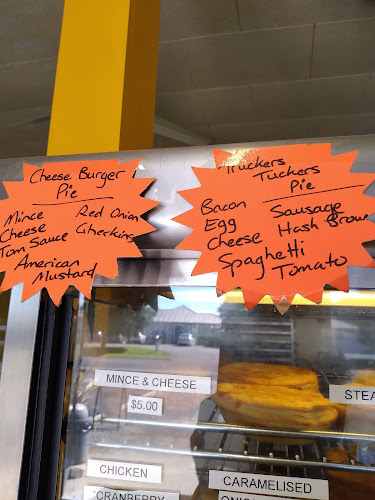 Cheese Burger
Pie
Mince
Cheese
Tom Sauce
Red Onion
Gherkins
American
Mustard
Truckers
Tuckers
Pie
Bacon
Egg
Cheese
Sausage
Hash Brown
Spaghetti
Tomato
MINCE & CHEESE
$5.00
STEA
CHICKEN
CRANBERRY
CARAMELISED